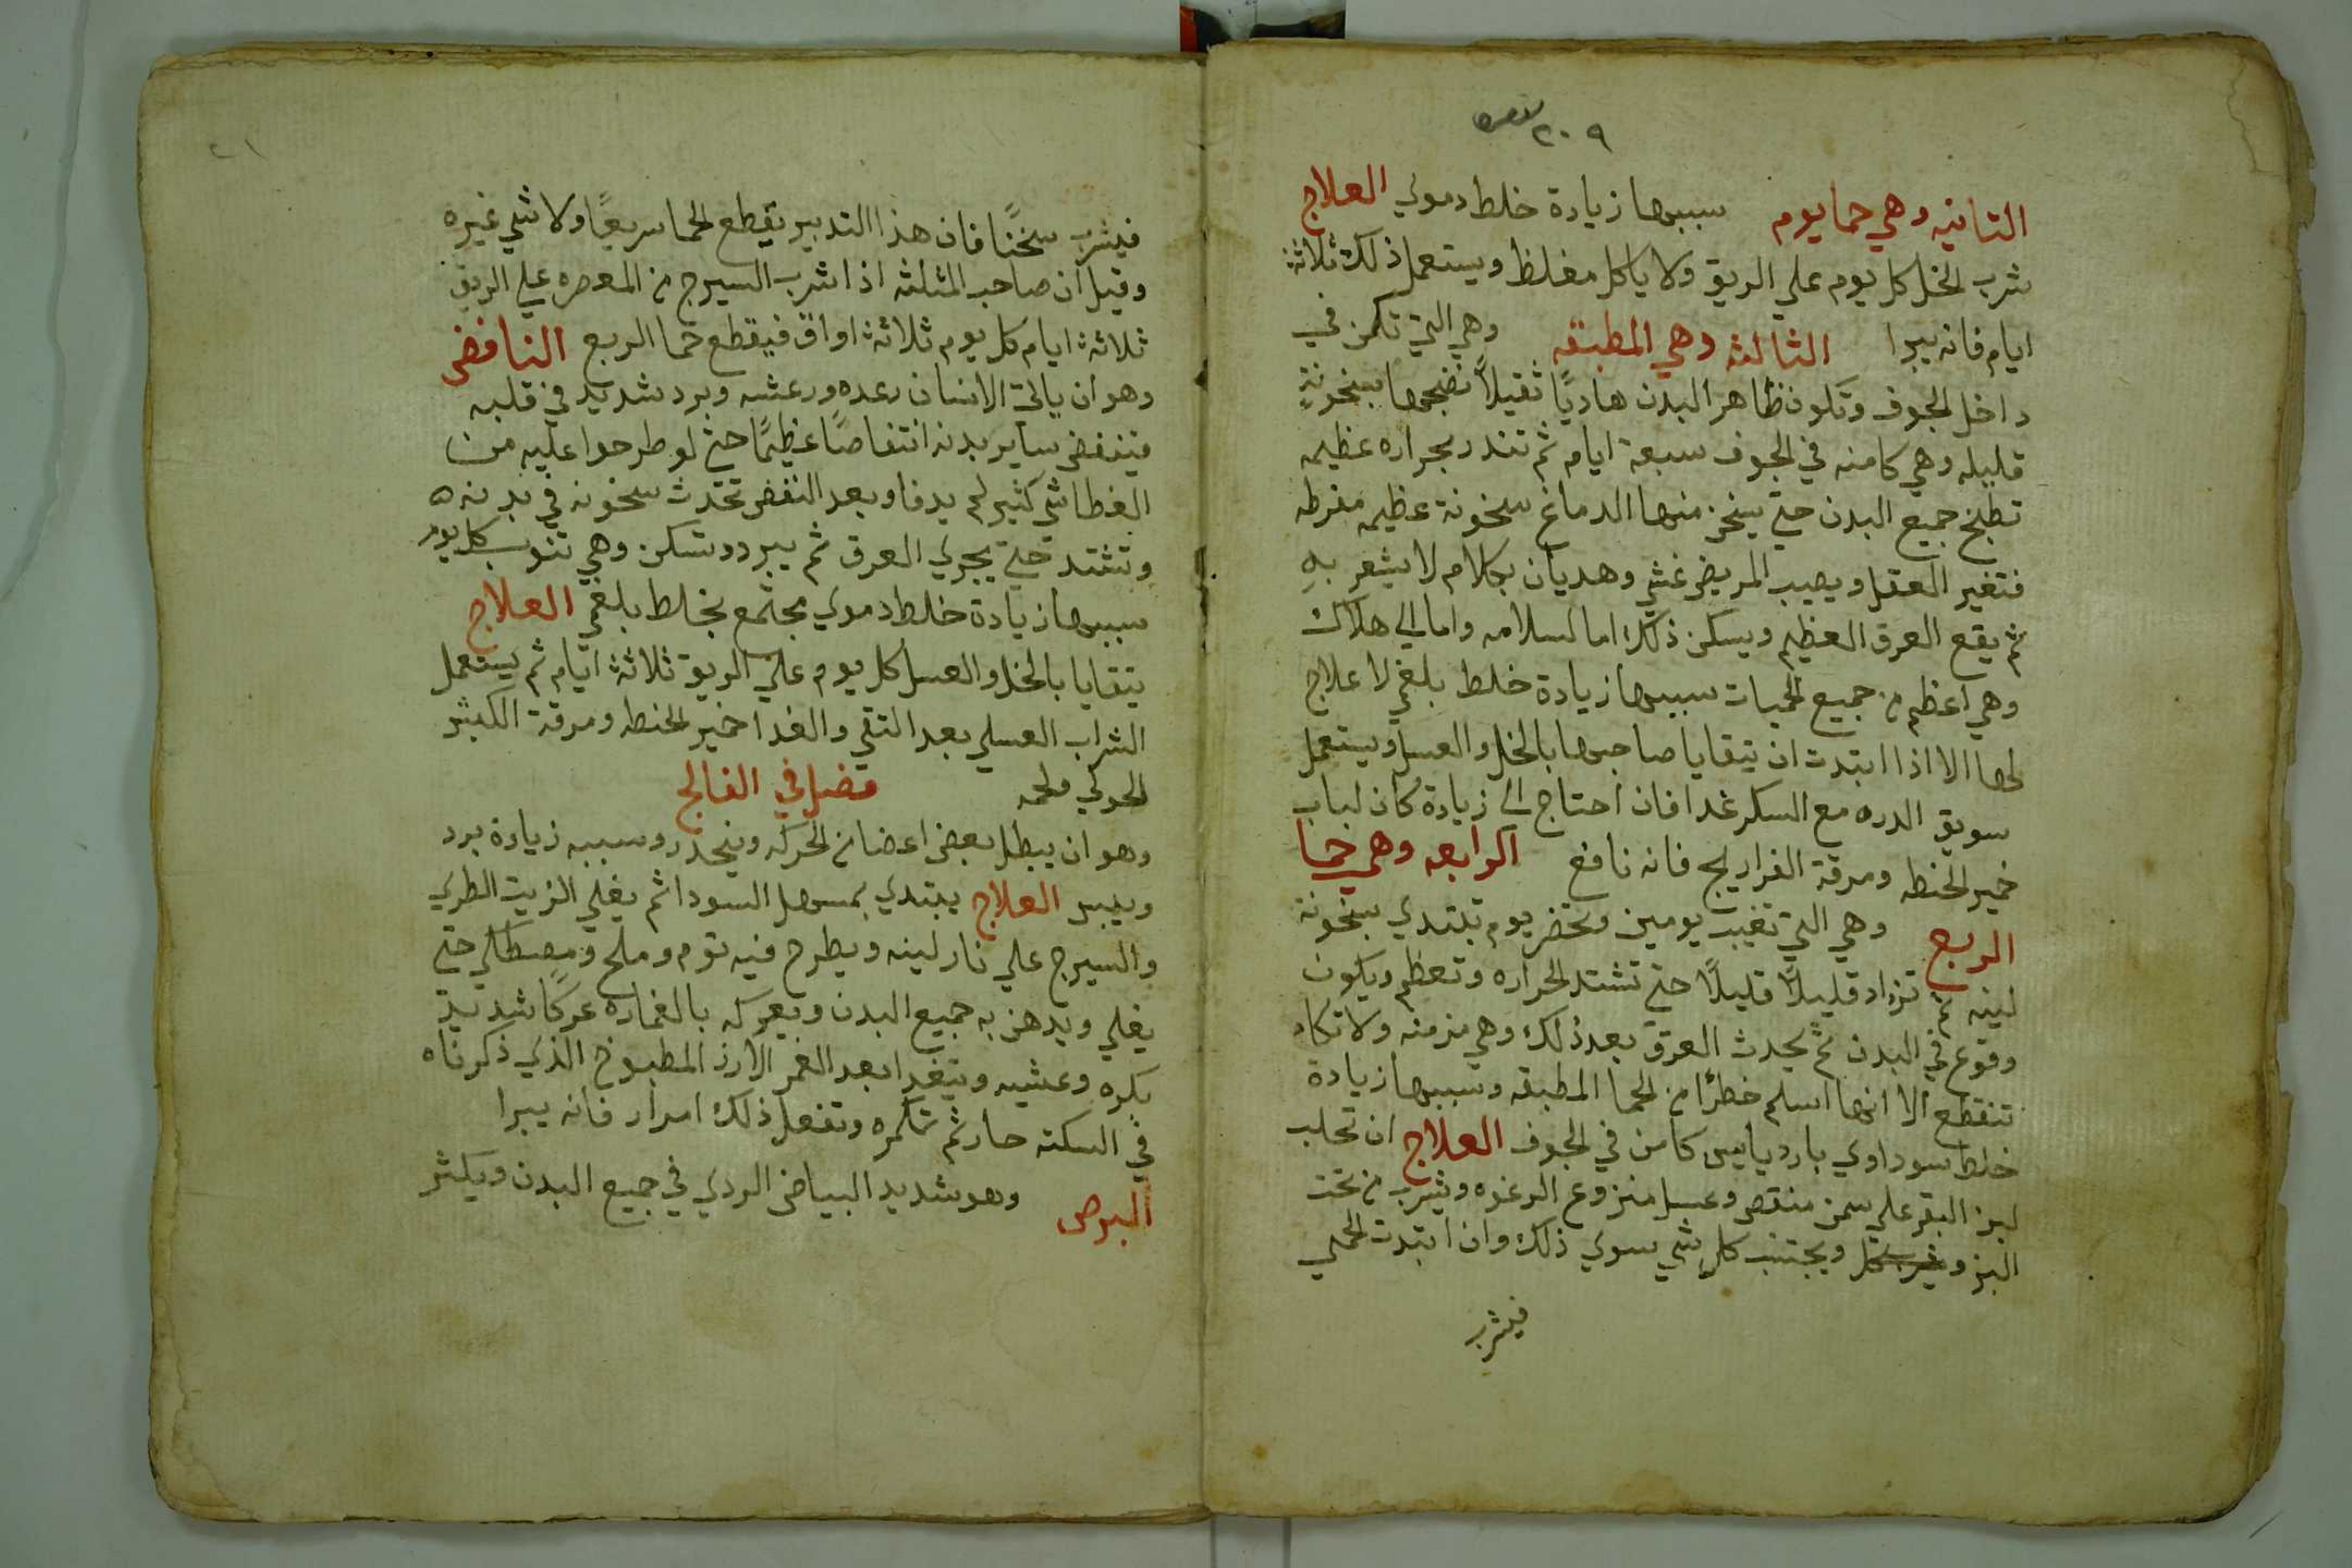 ٢٠٩
الثانيه وهي حما يوم سببها زيادة خلط دموي العلاج
شرب الخل كل يوم علي الريق ولا ياكل مغلظ ويستعمل ذلك ثلاثة
ايام فانه يبرا الثالثه وهي المطبقه وهي التي تكمن في
داخل الجوف وتكون ظاهر البدن هاديًا ثقيلاً نضجها بسخونةٍ
قليله وهي كامنه في الجوف سبعة ايام ثم تندر بحراره عظيمه
تطبخ جميع البدن حتي يسخن منها الدماغ سخونة عظيمه مفرطه
فتغير العقل ويصيب المريض غشي وهديان بكلام لا يشعر بهِ
ثم يقع العرق العظيم ويسكن ذلك اما لسلامه واما الي هلاك
وهي اعظم من جميع الحميات سببها زيادة خلط بلغمي لا علاج
لها الا اذا ابتدت ان يتقايا صاحبها بالخل والعسل ويستعمل
سويق الدره مع السكر غدا فان احتاج الي زيادة كان لباب
خمير الحنطه ومرقة الفراريج فانه نافع الرابعه وهي حما
الربع وهي التي تغيب يومين وتحضر يوم تبتدي بسخونة
لينه ثم تزداد قليلاً قليلاً حتي تشتد الحراره وتعظم ويكون
وقوع في البدن ثم يحدث العرق بعد ذلك وهي مزمنه ولا تكاد
تنقطع الا انها اسلم خطرًا من الحما المطبقه وسببها زيادة
خلط سوداوي بارد يابس كامن في الجوف العلاج ان تحلب
لبن البقر علي سمن منقص وعسل منزوع الرغوه ويشرب من تحت
البز ويجتنب كل شي سوي ذلك وان ابتدت الحمي
فيشرب
٢١
فيشرب سخنًا فان هذا التدبير يقطع الحما سريعًا ولا شي غيره
وقيل ان صاحب المثلثه اذا شرب السيرج من المعصره علي الريق
ثلاثة ايام كل يوم ثلاثة اواق فيقطع حما الربع النافض
وهو ان ياتي الانسان رعده ورعشه وبرد شديد في قلبه
فينفض ساير بدنه انتفاضًا عظيمًا حتي لو طرحوا عليه من
الغطا شي كثير لم يدفا وبعد النفض تحدث سخونه في بدنه
وتشتد حتي يجري العرق ثم يبرد وتسكن وهي تنوب كل يوم
سببها زيادة خلط دموي مجتمع بخلط بلغمي العلاج
يتقايا بالخل والعسل كل يوم علي الريق ثلاثة ايام ثم يستعمل
الشراب العسلي بعد التقي والغدا خمير الحنطه ومرقة الكبش
الحولي ولحمه فصل في الفالج
وهو ان يبطل بعض اعضا من الحركه ويتخدر وسببه زيادة برد
ويبس العلاج يبتدي بمسهل السودا ثم يغلي الزيت الطري
والسيرج علي نار لينه ويطرح فيه توم وملح ومصطكي حتي
يغلي ويدهن به جميع البدن ويعركه بالغماره عركًا شديد
بكره وعشيه ويتغدا بعد الغمر الارز المطبوخ الذي ذكرناه
في السكته حار ثم تكمره وتفعل ذلك امرار فانه يبرا
البرص وهو شديد البياض الردي في جميع البدن ويكثر